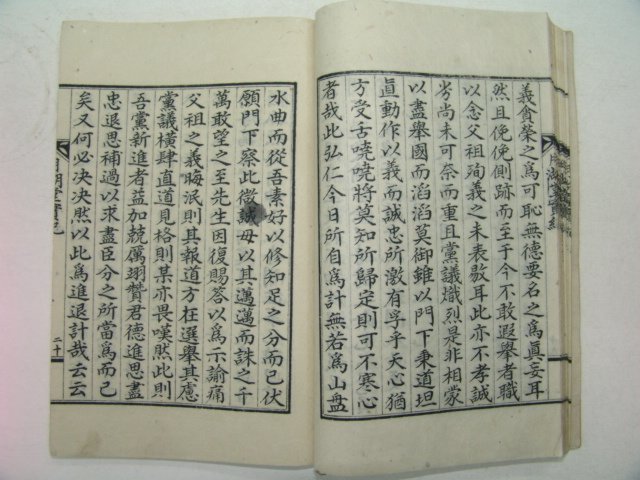 義貪榮之爲可恥無德要名之爲眞妄耳
然且俛俛側跡而至于今不敢遐舉者職
以念父祖殉義之未表敭耳此亦不孝誠
劣尚未可奈而重且黨議熾烈是非相蒙
以盡舉國而滔滔莫御雖以門下秉道坦
眞動作以義而誠忠所激有孚乎天心猶
方受舌嘵嘵將莫知所歸定則可不寒心
者哉此弘仁今日所自爲計無若爲山盤
水曲而從吾素好以修知足之分而已伏
願門下察此微誠毋以其邁邁而誅之千
萬敢望之至先生因復賜答以爲示諭痛
父祖之義晦泯則其報道方在選舉其慮
黨議橫肆直道見格則某亦畏嘆然此則
吾黨新進者益加兢厲翊贊君德進思盡
忠退思補過以求盡臣分之所當爲而已
矣又何必决决然以此爲進退計哉云云
二十